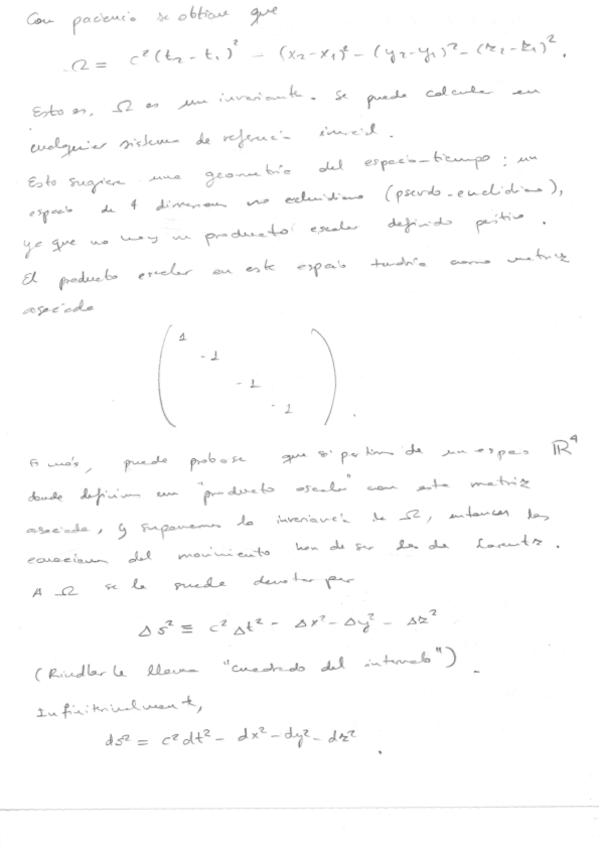 Con paciencia se obtiene que
Ω = c²(t₂ - t₁)² - (x₂-x₁)² - (y₂-y₁)² - (z₂-z₁)².
Esto es, Ω es un invariante. Se puede calcular en
cualquier sistema de referencia inercial.
Esto sugiere una geometría del espacio-tiempo: un
espacio de 4 dimensiones no euclidiano (pseudo-euclidiano),
ya que no hay un producto escalar definido positivo.
El producto escalar en este espacio tendría como matriz
asociada
1
-1
-1
-1 .
Es más, puede probarse que si partimos de un espacio ℝ⁴
donde definimos un "producto escalar" con esta matriz
asociada, y suponemos la invariancia de Ω, entonces las
ecuaciones del movimiento han de ser las de Lorentz.
A Ω se le suele denotar por
Δs² ≡ c²Δt² - Δx² - Δy² - Δz²
(Rindler le llama "cuadrado del intervalo").
Infinitesimalmente,
ds² = c²dt² - dx² - dy² - dz² .